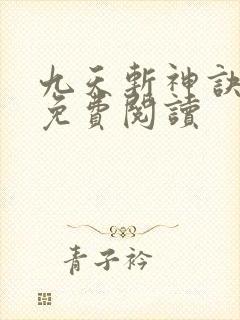 九天斬神訣
免費閱讀
青子衿